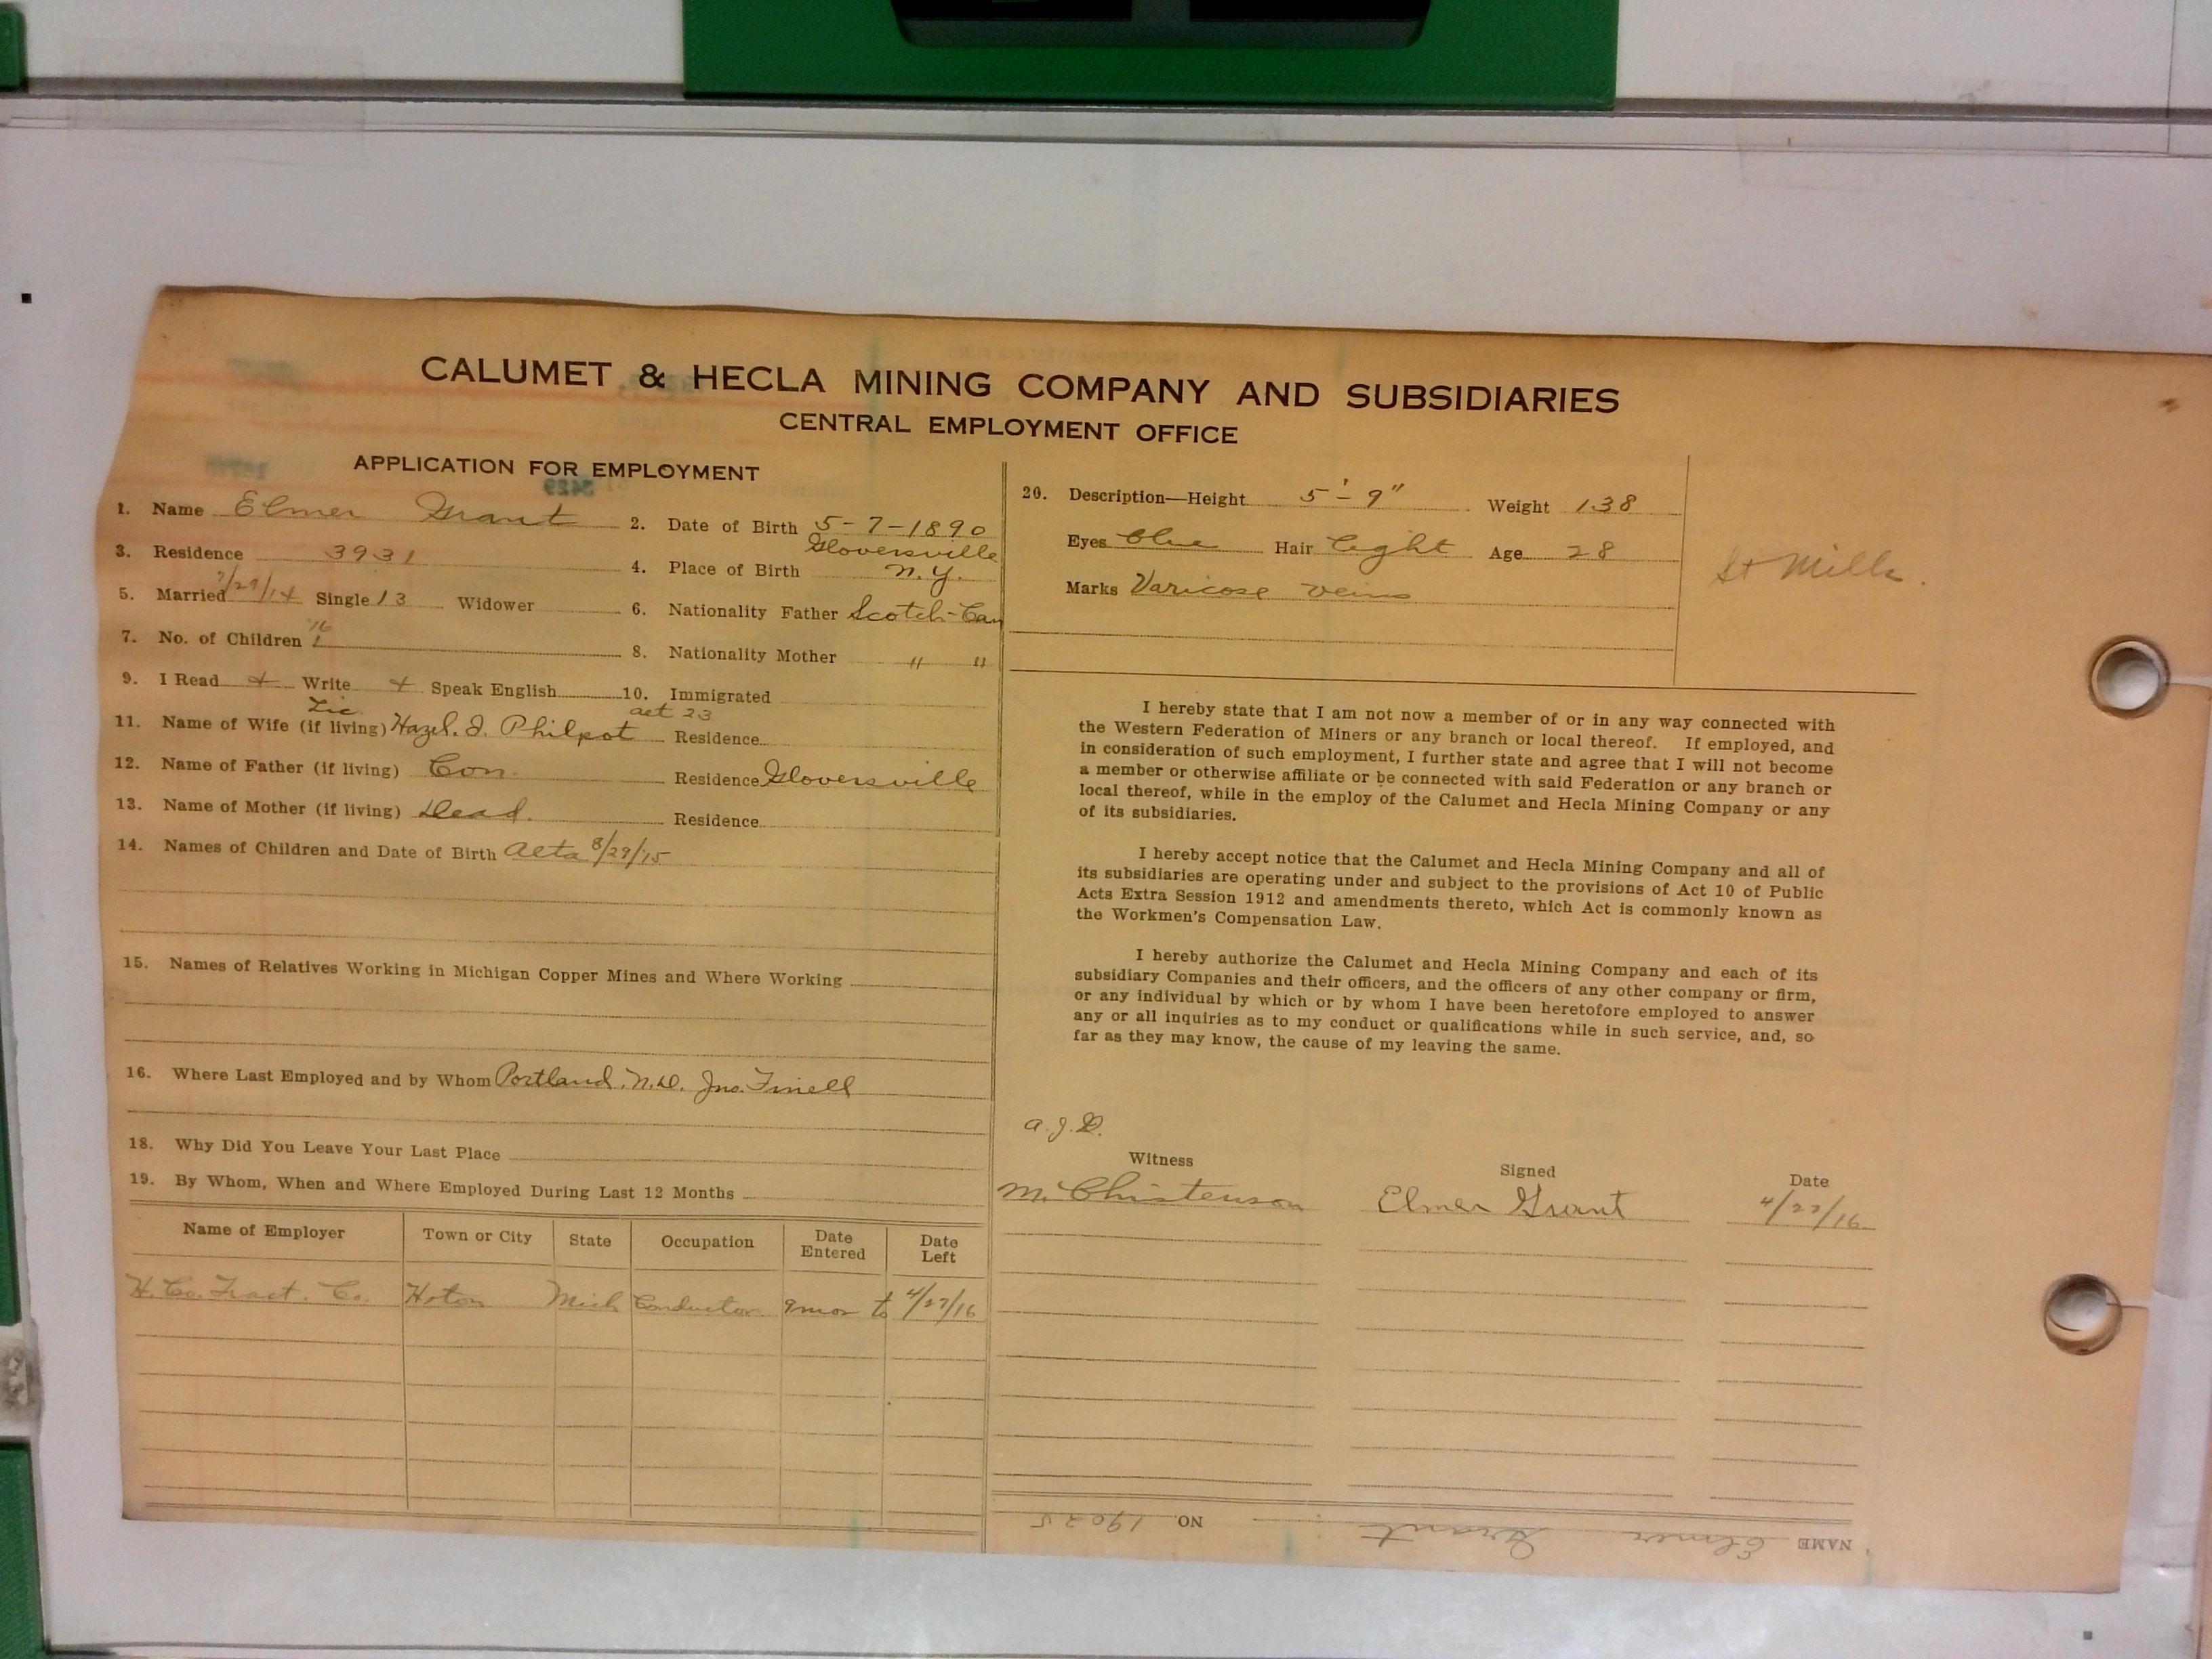 CALUMET & HECLA MINING COMPANY AND SUBSIDIARIES
CENTRAL EMPLOYMENT OFFICE
APPLICATION FOR EMPLOYMENT
1. Name Elmer Grant 2. Date of Birth 5-7-1890
3. Residence 3931 4. Place of Birth Gloversville N.Y.
5. Married 7/29/14 Single 13 Widower 6. Nationality Father Scotch-Can
7. No. of Children 1 16 8. Nationality Mother " "
9. I Read + Write + Speak English 10. Immigrated
11. Name of Wife (if living) Hazel. I. Philpot aet 23 Residence
12. Name of Father (if living) Con. Residence Gloversville
13. Name of Mother (if living) Dead. Residence
14. Names of Children and Date of Birth Aeta 8/29/15
15. Names of Relatives Working in Michigan Copper Mines and Where Working
16. Where Last Employed and by Whom Portland. N.D. Jno. Finell
18. Why Did You Leave Your Last Place
19. By Whom, When and Where Employed During Last 12 Months
Name of Employer Town or City State Occupation Date Entered Date Left
H. Co. Tract. Co. Hoton Mich Conductor 9 mos to 4/27/16
20. Description—Height 5'-9" Weight 138
Eyes blue Hair light Age 28
Marks Varicose veins
St Mills.
I hereby state that I am not now a member of or in any way connected with
the Western Federation of Miners or any branch or local thereof. If employed, and
in consideration of such employment, I further state and agree that I will not become
a member or otherwise affiliate or be connected with said Federation or any branch or
local thereof, while in the employ of the Calumet and Hecla Mining Company or any
of its subsidiaries.
I hereby accept notice that the Calumet and Hecla Mining Company and all of
its subsidiaries are operating under and subject to the provisions of Act 10 of Public
Acts Extra Session 1912 and amendments thereto, which Act is commonly known as
the Workmen's Compensation Law.
I hereby authorize the Calumet and Hecla Mining Company and each of its
subsidiary Companies and their officers, and the officers of any other company or firm,
or any individual by which or by whom I have been heretofore employed to answer
any or all inquiries as to my conduct or qualifications while in such service, and, so
far as they may know, the cause of my leaving the same.
Witness Signed Date
M. Christenson Elmer Grant 4/27/16
NAME Elmer Grant NO. 19025